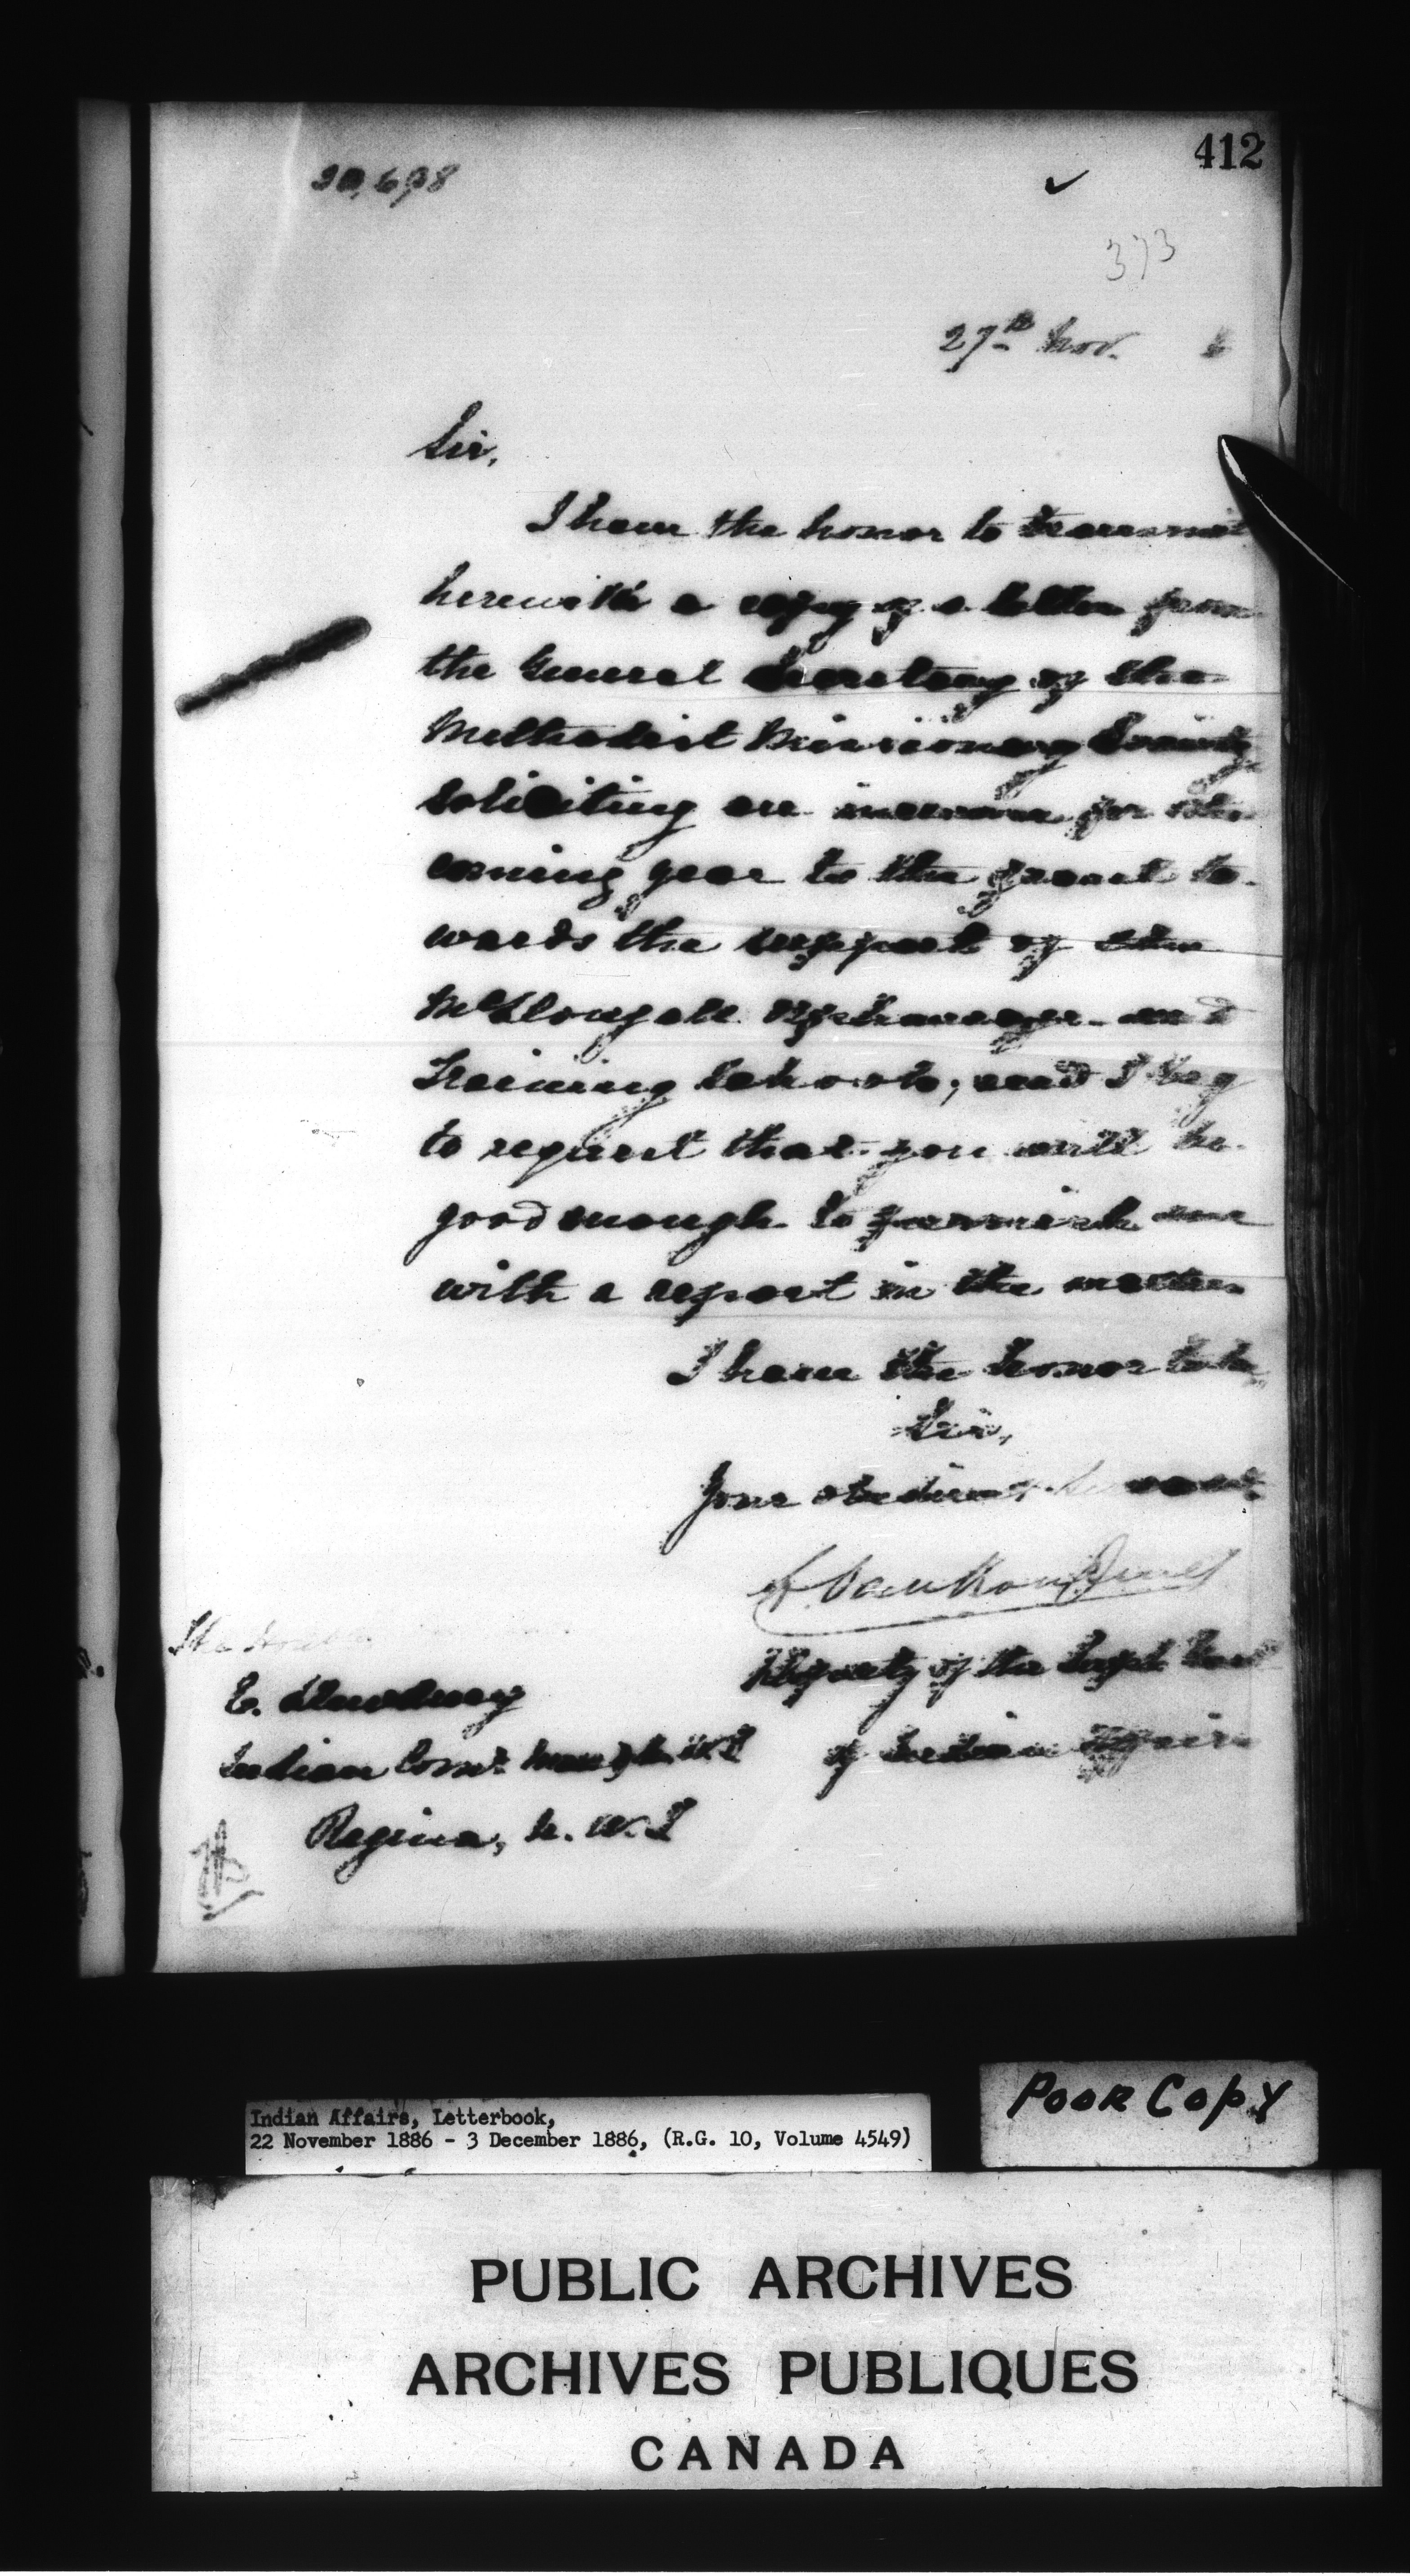 412
30,698
373
27th Nov. 6
Sir,
I have the honor to transmit
herewith a copy of a letter from
the General Secretary of the
Methodist Missionary Society
soliciting an increase for the
coming year to the grant to-
wards the support of the
McDougall Orphanage and
Training School; and I beg
to request that you will be
good enough to furnish me
with a report in the matter
I have the honor to be
Sir,
Your obedient Servant
L. Vankoughnet
Deputy of the Supt Genl
of Indian Affairs
The Honble
E. Dewdney
Indian Comr Man & N.W.T
Regina, N.W.T
Indian Affairs, Letterbook,
22 November 1886 - 3 December 1886, (R.G. 10, Volume 4549)
Poor Copy
PUBLIC ARCHIVES
ARCHIVES PUBLIQUES
CANADA